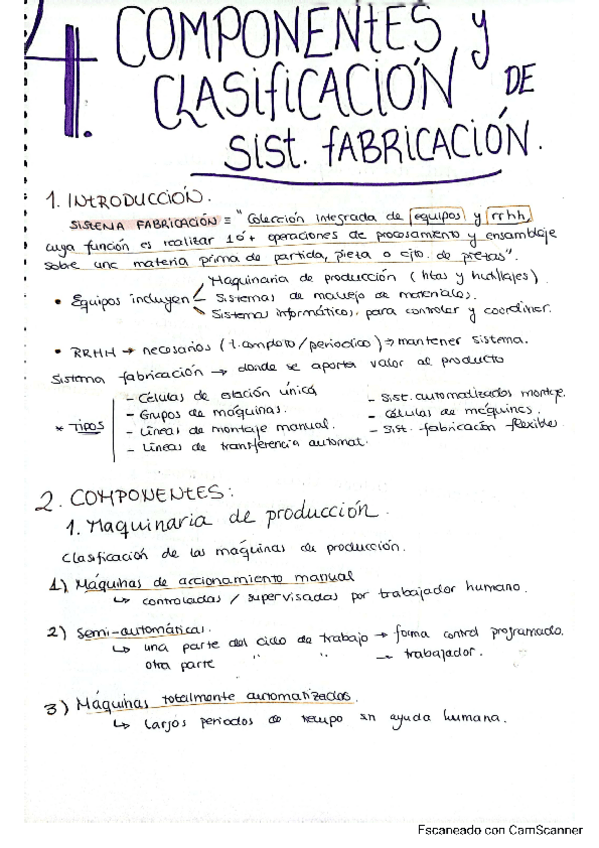 4. COMPONENTES y
CLASIFICACIÓN DE
SIST. FABRICACIÓN.
1. INTRODUCCIÓN.
SISTEMA FABRICACIÓN = "Colección integrada de equipos y rrhh,
cuya función es realizar 1 ó + operaciones de procesamiento y ensamblaje
sobre una materia prima de partida, pieza o cjto. de piezas".
• Equipos incluyen Maquinaria de producción (htas y hutillajes).
Sistemas de manejo de materiales.
Sistemas informáticos, para controlar y coordinar.
• RRHH → necesarios (t. completo/periodico) → mantener sistema.
Sistema fabricación → donde se aporta valor al producto
* TIPOS
- Células de estación única
- Grupos de máquinas.
- Líneas de montaje manual.
- Líneas de transferencia automat.
- Sist. automatizados montaje.
- Células de máquinas.
- Sist. fabricación flexible
2. COMPONENTES:
1. Maquinaria de producción.
Clasificación de las máquinas de producción.
1) Máquinas de accionamiento manual
↳ controladas / supervisadas por trabajador humano.
2) Semi-automáticas.
↳ una parte del ciclo de trabajo → forma control programado.
otra parte " " → trabajador.
3) Máquinas totalmente automatizadas.
↳ Largos periodos de tiempo sin ayuda humana.
Escaneado con CamScanner